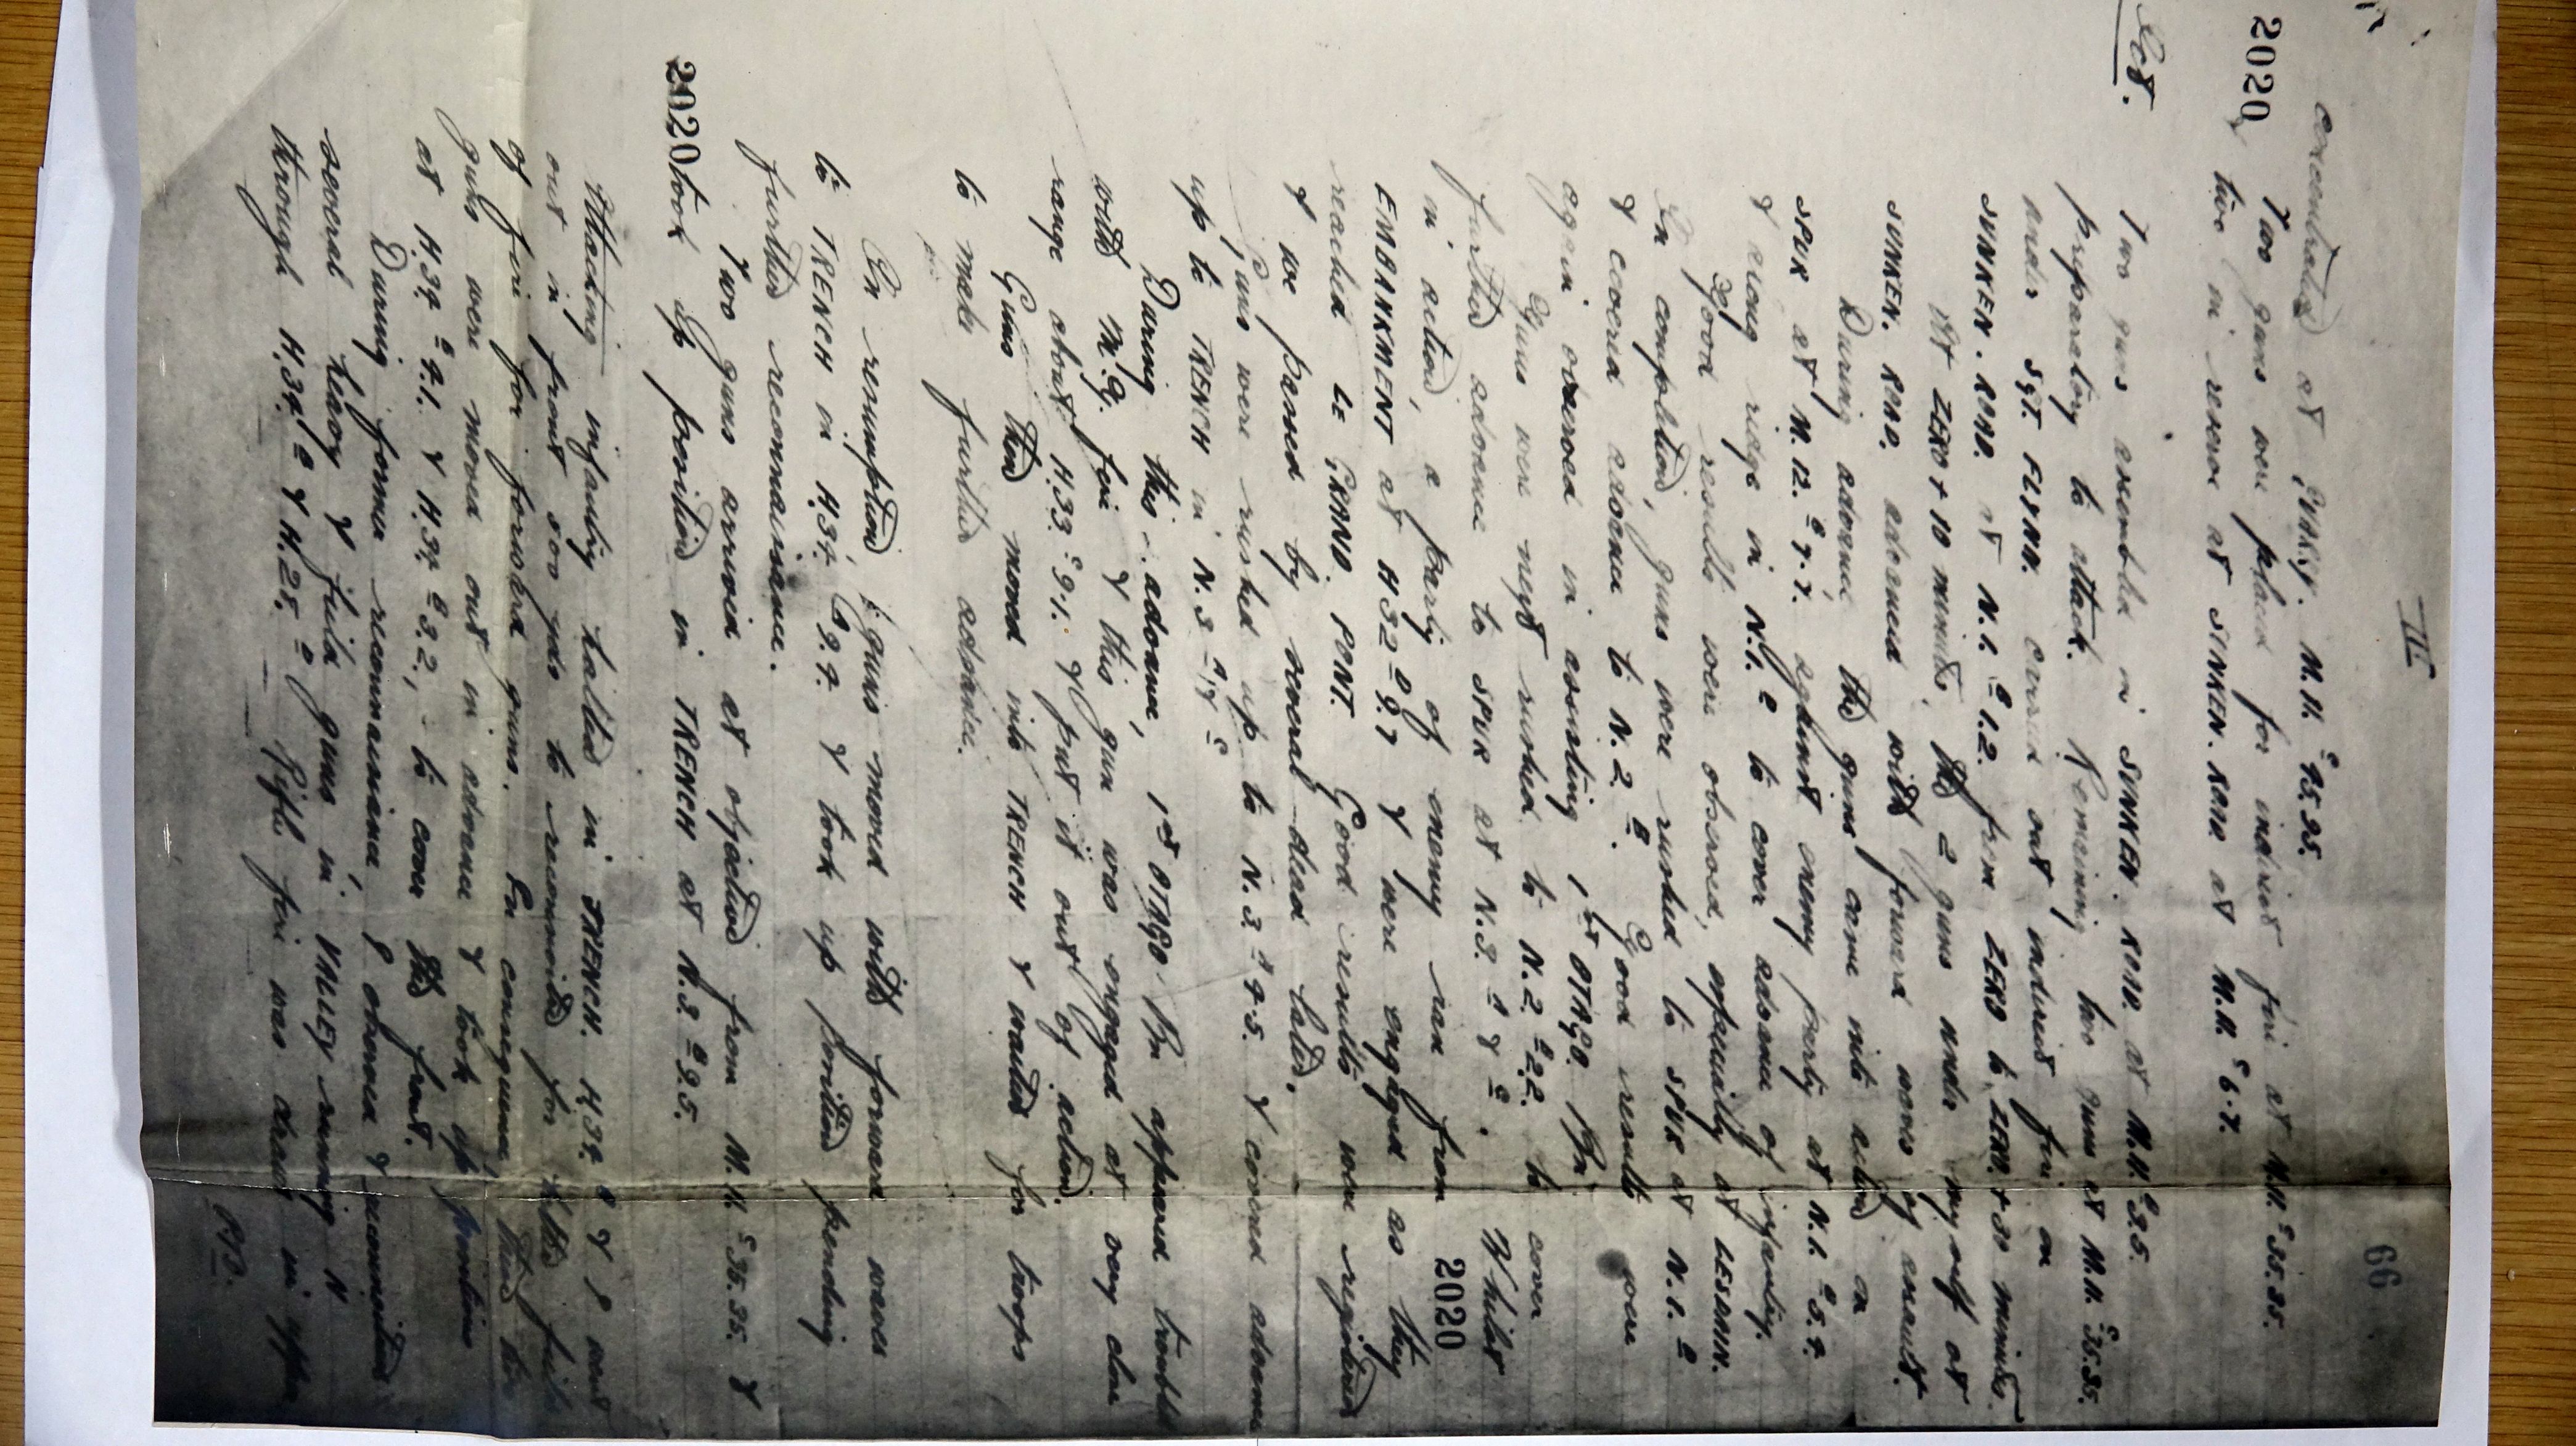 III
66
concentrated at QUARRY. M.11.c 95.95.
2020
Two guns were placed for indirect fire at M.11.c 35.85.
& two in reserve at SUNKEN. ROAD at M.11.c 6.7.
Two guns assembled in SUNKEN. ROAD. at M.11.c 9.5.
preparatory to attack. Remaining two guns at M.11.c 35.85.
under SGT. FLYNN. carried out indirect fire on
SUNKEN. ROAD. at N.1.c 1.2. from ZERO to ZERO + 30 minutes.
At ZERO + 10 minutes, the 2 guns under myself at
SUNKEN. ROAD. advanced with forward waves of assault.
During advance the guns came into action on
SPUR at M.12. 7.7. against enemy party at N.1. 5.4.
& along ridge in N.1. to cover advance of infantry.
Good results were observed, especially at LESDAIN.
On completion, guns were rushed to SPUR at N.1.
& covered advance to N.2. Good results were
again observed in assisting 1st OTAGO. Bn.
Guns were next rushed to N.2. 2.2. to cover
further advance to SPUR at N.3. Whilst
in action, a party of enemy ran from
2020
EMBANKMENT at H.32 9.7 & were engaged as they
reached LE GRAND. PONT. Good results were registered
& we passed by several dead later.
Guns were rushed up to N.3. 4.5. & covered advance
up to TRENCH in N.3
During this advance, 1st OTAGO Bn appeared troubled
with M.G. fire & this gun was engaged at very close
range about H.33.c 9.1. & put it out of action.
Guns then moved into TRENCH & waited for troops
to make further advance.
On resumption, guns moved with forward waves
to TRENCH in H.34. 9.4. & took up position pending
further reconnaissance.
Two guns arrived at objective from M.11.c 35.85. &
2020
took up position in TRENCH at N.3. 9.5.
Attacking infantry halted in TRENCH. H.34. & I went
out in front 500 yds to reconnoitre for fields
of fire for forward guns. In consequence, two
guns were moved out in advance & took up positions
at H.34. 4.1. & H.34. 3.2, - to cover the front.
During former reconnaissance, I observed & reconnoitred
several heavy & field guns in VALLEY running N
through H.34. & H.28. Rifle fire was drawn in